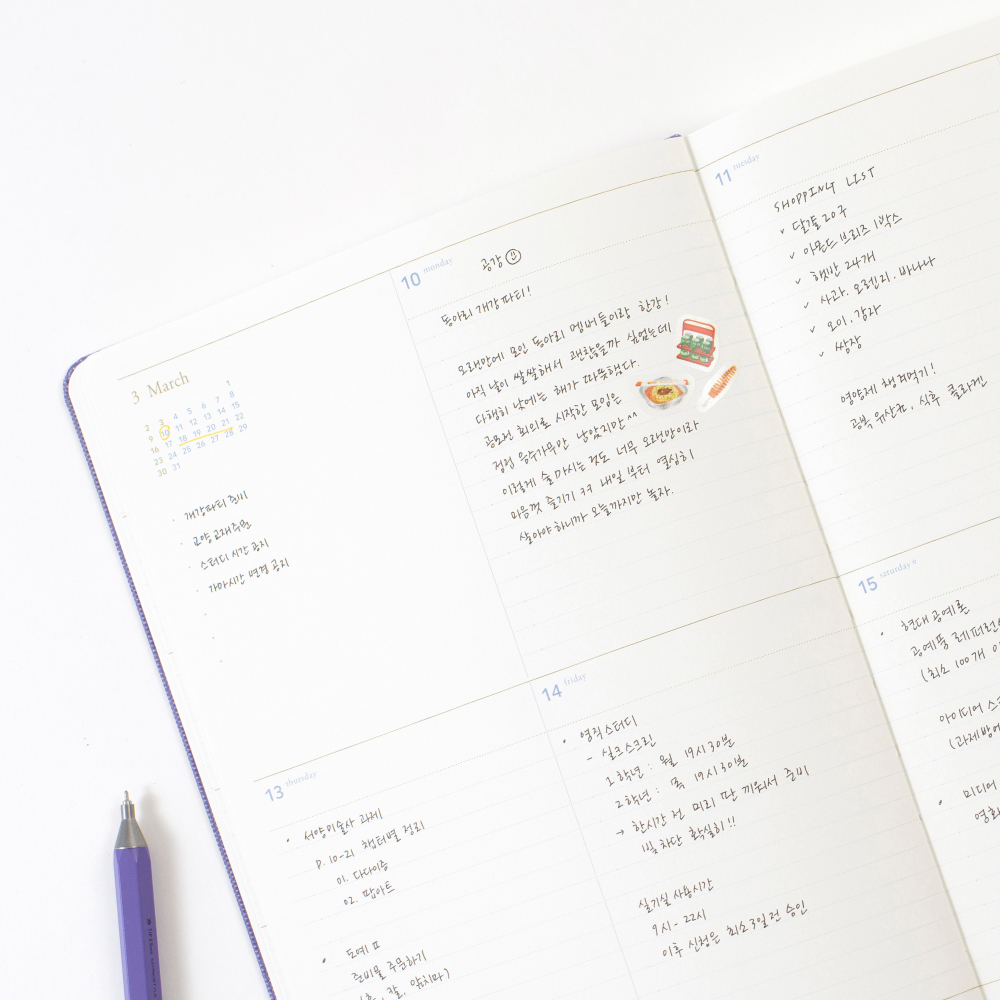 3 March
1
2 3 4 5 6 7 8
9 10 11 12 13 14 15
16 17 18 19 20 21 22
23 24 25 26 27 28 29
30 31
개강파티 준비
교양 교재주문
스터디 시간 공지
가마시간 변경 공지
10 monday
공강
동아리 개강파티!
오래만에 모인 동아리 멤버들이랑 한강!
아직 날이 쌀쌀해서 괜찮을까 싶었는데
다행히 낮에는 해가 따뜻했다.
공모전 회의로 시작한 모임은
점점 음주가무만 남았지만^^
이렇게 술 마시는 것도 너무 오래만이라
마음껏 즐기기 ㅋㅋ 내일 부터 열심히
살아야 하니까 오늘까지만 놀자.
11 tuesday
SHOPPING LIST
달걀 20구
아몬드 브리즈 1박스
햇반 24개
사과. 오렌지. 바나나
오이. 감자
쌈장
영양제 챙겨먹기!
공복 유산균, 식후 콜라겐
13 thursday
서양미술사 과제
p. 10-21 챕터별 정리
01. 다다이즘
02. 팝아트
도예 II
준비물 주문하기
, 칼, 앞치마)
14 friday
염직스터디
- 실크스크린
1학년 : 월 19시 30분
2학년 : 목 19시 30분
→ 한시간 전 미리 판 끼워서 준비
빛 차단 확실히!!
실기실 사용시간
9시 - 22시
이후 신청은 최소 3일 전 승인
15 saturday
현대공예론
공예품 레퍼런
(최소 100개
아이디어
(과제방에
미디어
영화